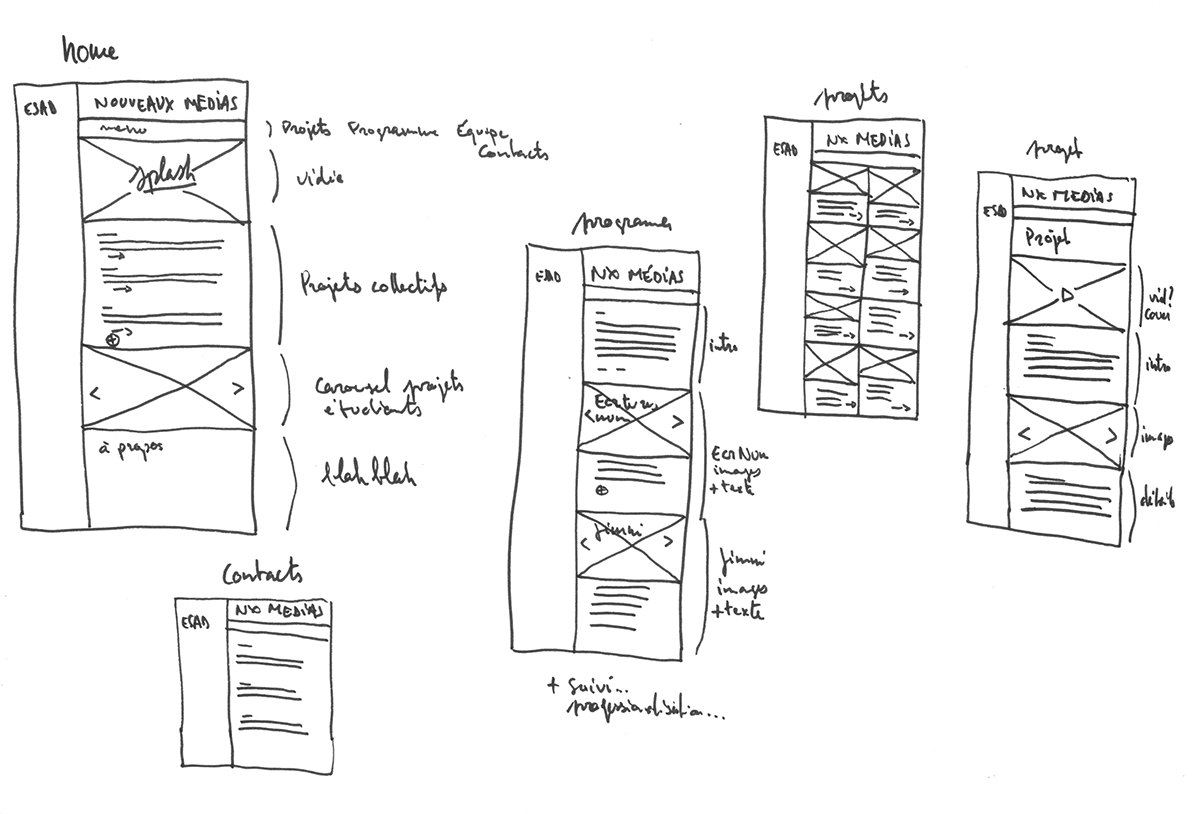 home
ESAD
NOUVEAUX MEDIAS
menu
Projets Programme Équipe
Contacts
splash
vidéo
Projets collectifs
< >
Carousel projets
étudiants
à propos
blah blah
Contacts
ESAD
NX MEDIAS
programme
ESAD
NX MÉDIAS
intro
Ecritures
num
< >
EcrNum
images
+ texte
Jimmi
< >
Jimmi
images
+ texte
+ Suivi...
professionalisation...
projets
ESAD
NX MEDIAS
projet
ESAD
NX MEDIAS
Projet
vid?
cover
intro
< >
images
détails